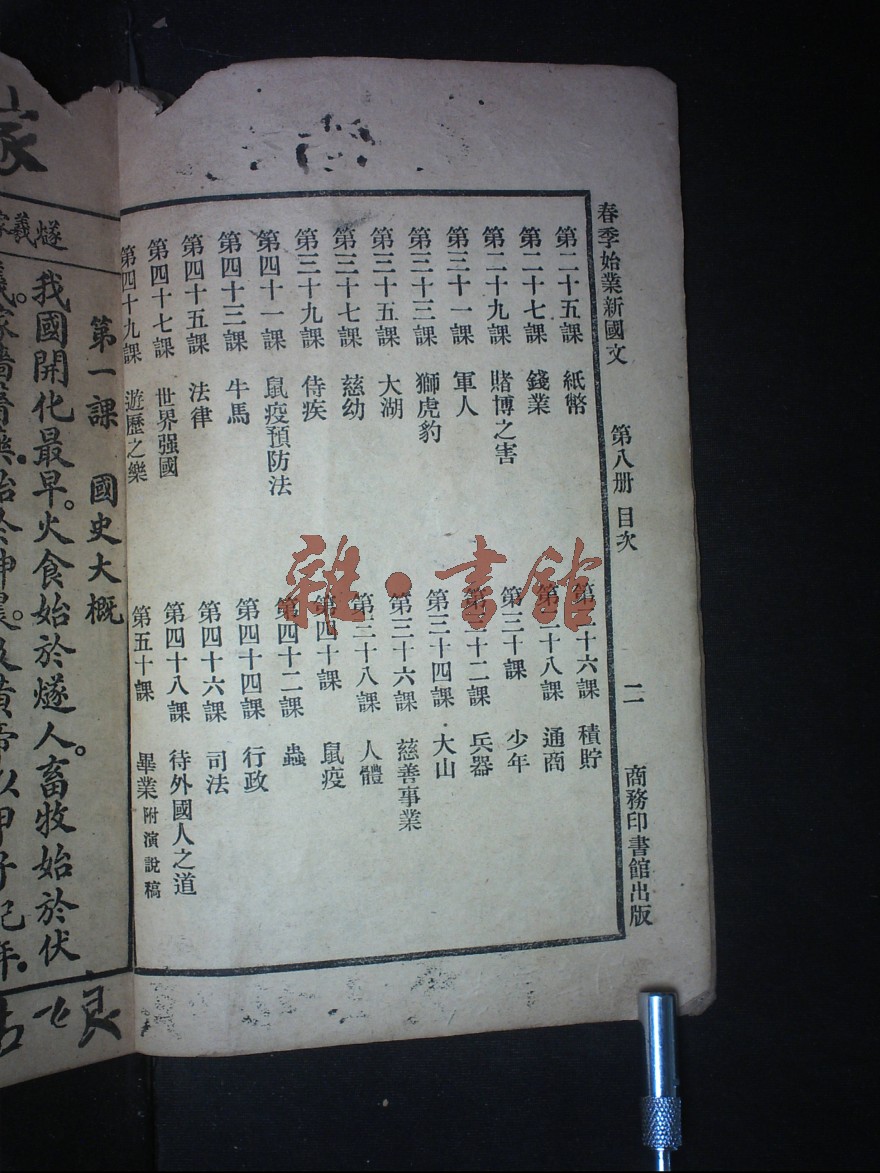 春季始業新國文 第八册 目次 二 商務印書館出版
第二十五課 紙幣
第二十六課 積貯
第二十七課 錢業
第二十八課 通商
第二十九課 賭博之害
第三十課 少年
第三十一課 軍人
第三十二課 兵器
第三十三課 獅虎豹
第三十四課 大山
第三十五課 大湖
第三十六課 慈善事業
第三十七課 慈幼
第三十八課 人體
第三十九課 侍疾
第四十課 鼠疫
第四十一課 鼠疫預防法
第四十二課 蟲
第四十三課 牛馬
第四十四課 行政
第四十五課 法律
第四十六課 司法
第四十七課 世界强國
第四十八課 待外國人之道
第四十九課 遊歷之樂
第五十課 畢業 附演說稿
雜·書館
第一課 國史大概
我國開化最早。火食始於燧人。畜牧始於伏
燧
羲